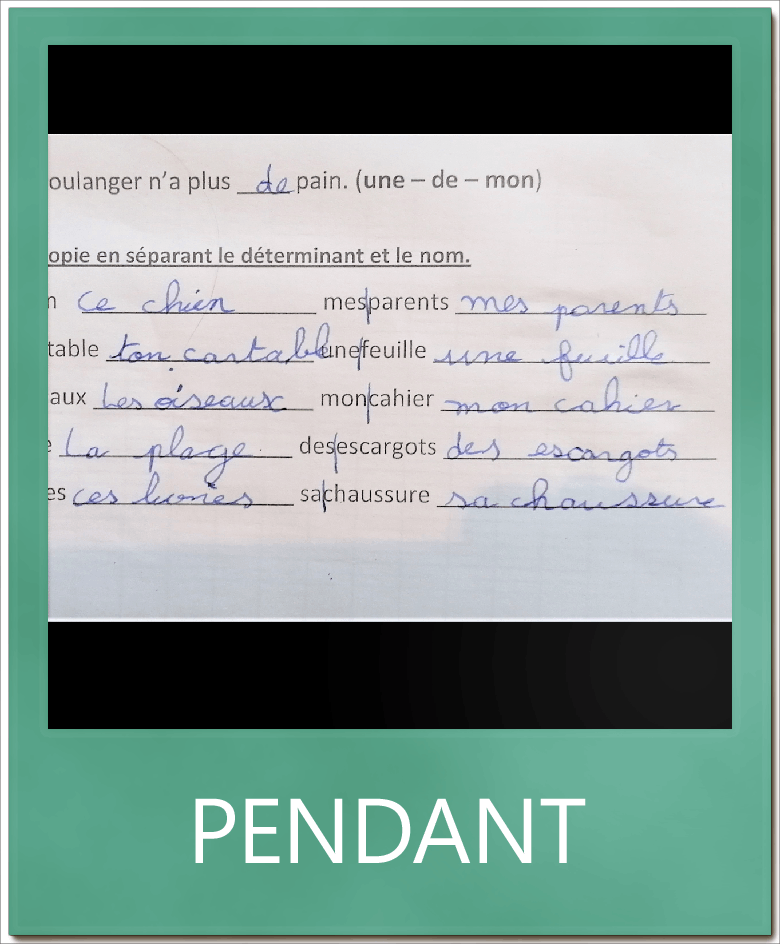 oulanger n'a plus de pain. (une – de – mon)
opie en séparant le déterminant et le nom.
n ce chien mes|parents mes parents
table ton cartable une|feuille une feuille
aux Les oiseaux mon|cahier mon cahier
e La plage des|escargots des escargots
es ces sa|chaussure sa chaussure
PENDANT